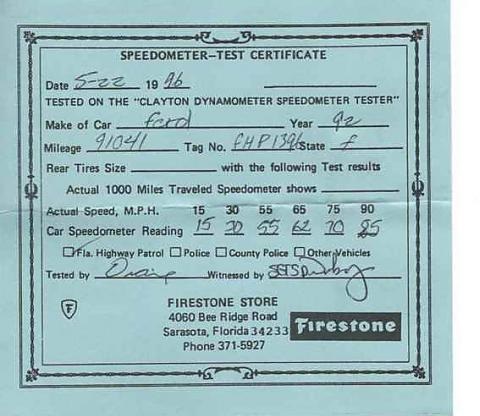 SPEEDOMETER-TEST CERTIFICATE
Date 5-22 19 96
TESTED ON THE "CLAYTON DYNAMOMETER SPEEDOMETER TESTER"
Make of Car Ford Year 92
Mileage 91041 Tag No. FHP1396 State F
Rear Tires Size with the following Test results
Actual 1000 Miles Traveled Speedometer shows
Actual Speed, M.P.H. 15 30 55 65 75 90
Car Speedometer Reading 15 30 55 62 70 85
Fla. Highway Patrol Police County Police Other Vehicles
Tested by Witnessed by
F FIRESTONE STORE
4060 Bee Ridge Road
Sarasota, Florida 34233 Firestone
Phone 371-5927